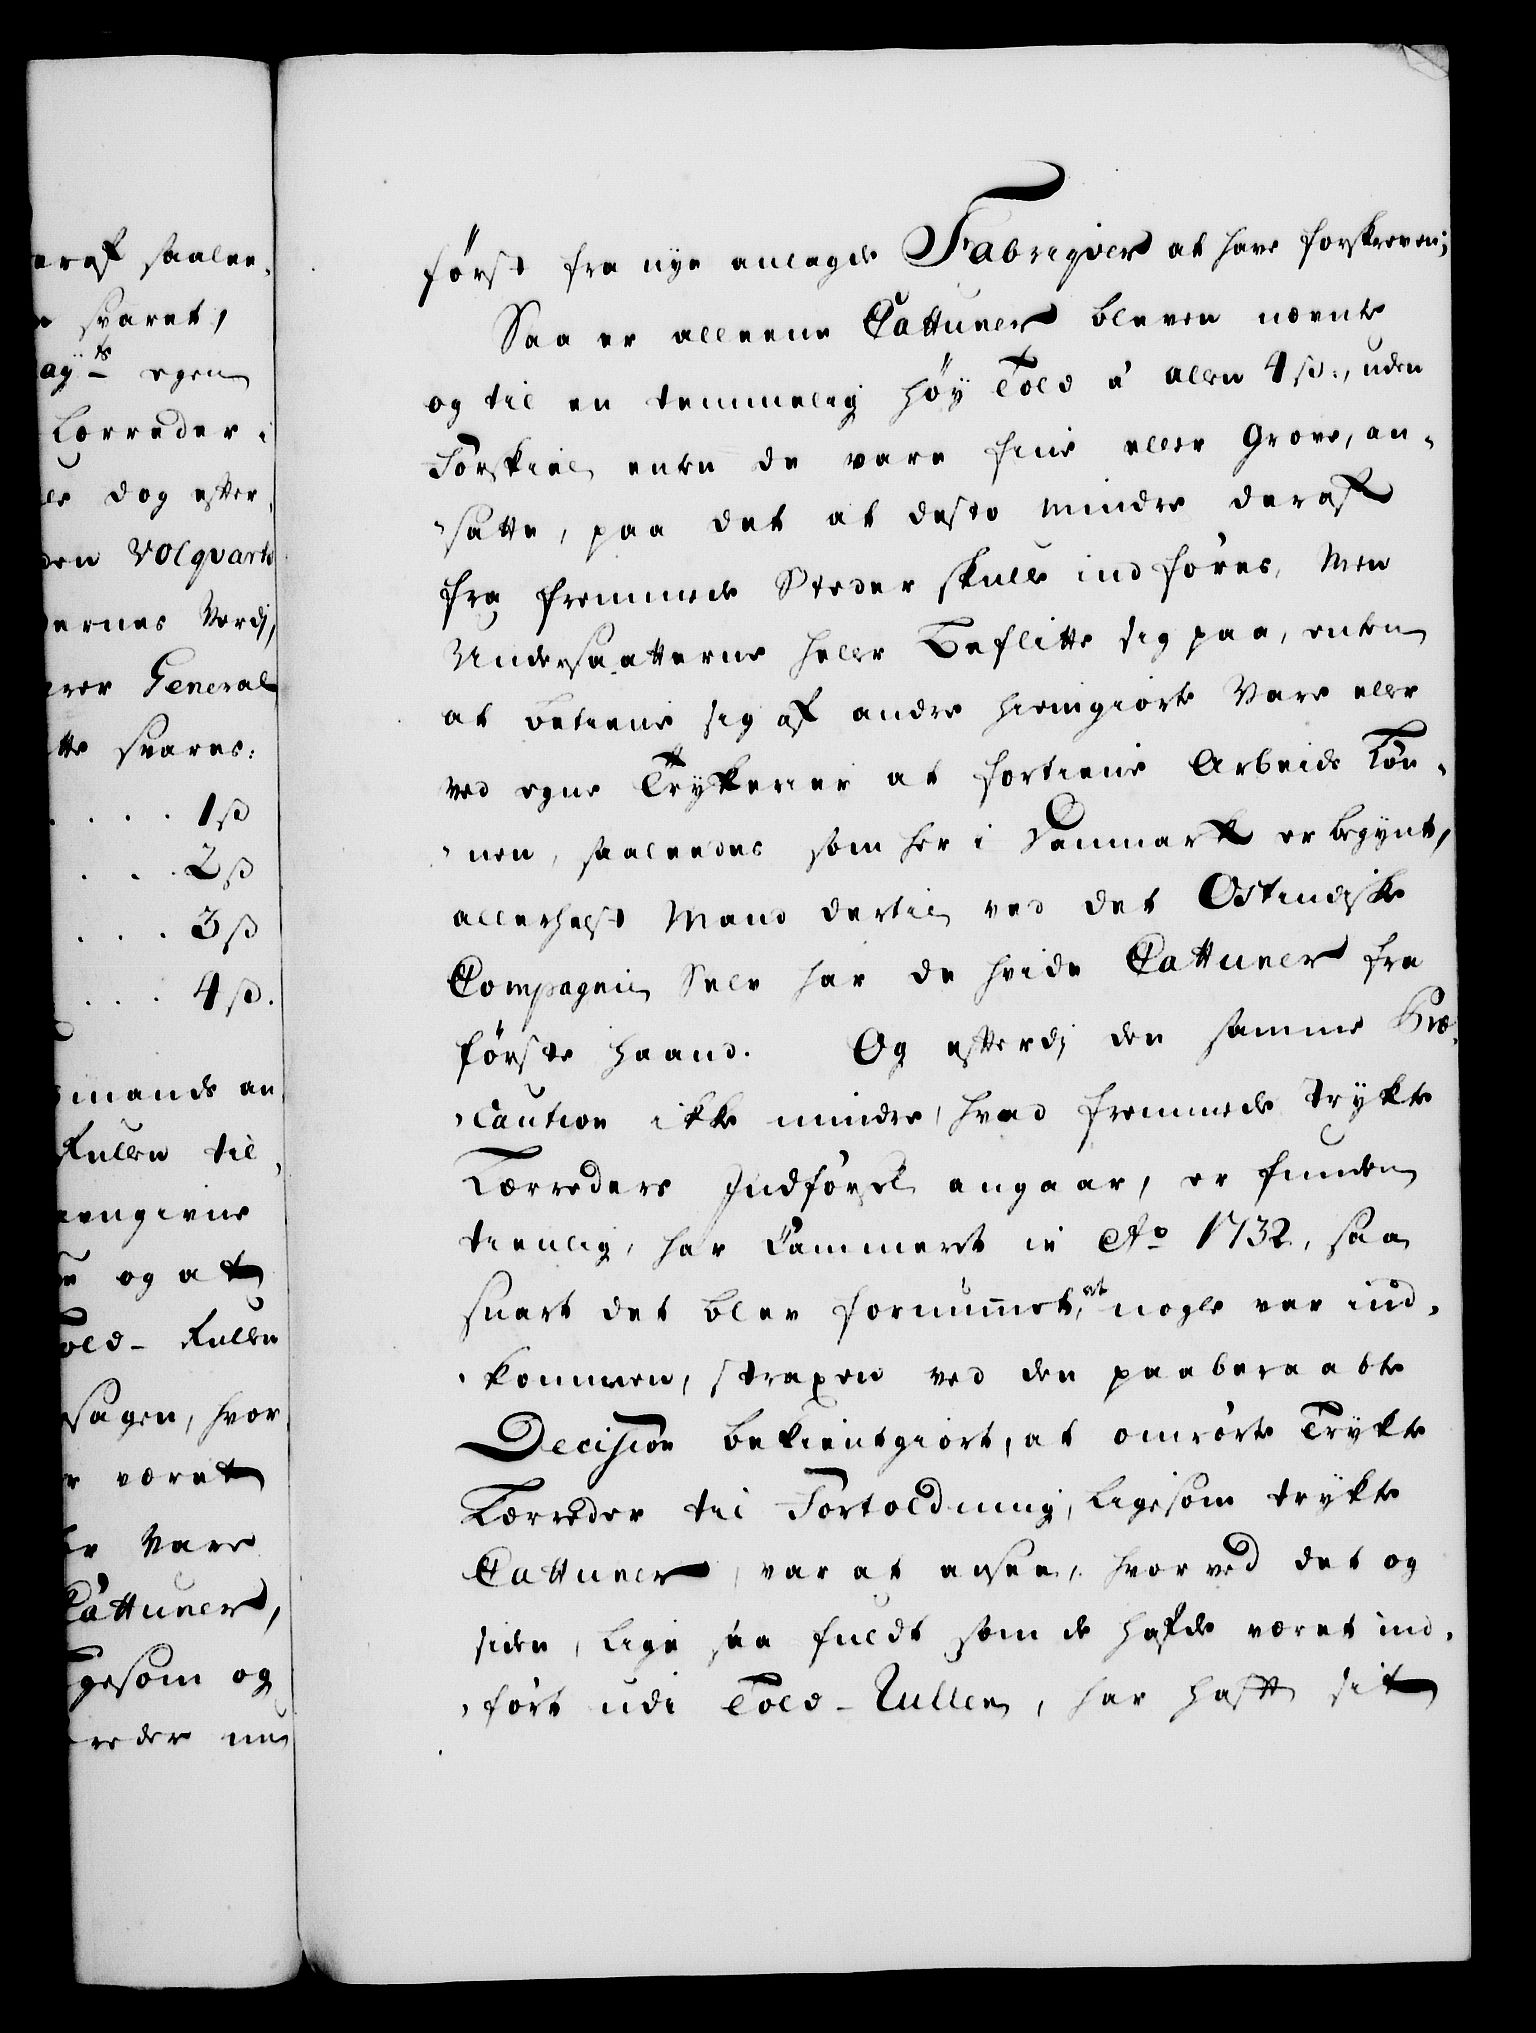 eraf saalee-
e svaret,
ayts egen
Lærreder i
le dog efter-
den Volqvarts
dernes Verdj,
erer General
tte svares:
. . . . 1 ß
. . . 2 ß
. . . 3 ß
. . . 4 ß.
mands an
Rullen til,
engivne
e og at
old-Rullen
sagen, hvor
r været
le Vare
Cattuner,
gesom og
reder nu
først fra nye anlagde Fabriqver at have forskreven;
Saa er alleene Cattuner bleven nævnte
og til en temmelig høy Told à Allen 4 ß:, uden
Forskiel enten de vare fine eller Grove, an-
-satte, paa det at desto mindre deraf
fra fremmede Steder skulle indføres, Men
Undersaatterne heller beflitte sig paa, enten
at betiene sig af andre hiemgiorte Vare eller
ved egne Trykkerier at fortiene Arbeids Løn-
-nen, saaleedes som her i Danmark er begynt,
allerhelst Mand dertil ved det Ostindiske
Compagnie Selv har de hvide Cattuner fra
første haand. Og efterdj den samme Præ-
-caution ikke mindre, hvad fremmede trykte
Lærreders Indførsel angaar, er funden
tienlig, har Cammeret in Ao 1732, saa
snart det blev fornummet, at nogle var ind-
-kommen, straxen ved den paaberaabte
Decision bekientgiort, at omrørte Trykte
Lærreder til Fortoldning, ligesom trykte
Cattuner, var at ansee, hvorved det og
siden, lige saa fuldt som de hafde været ind-
-ført udi Told-Rullen, har hafft sit